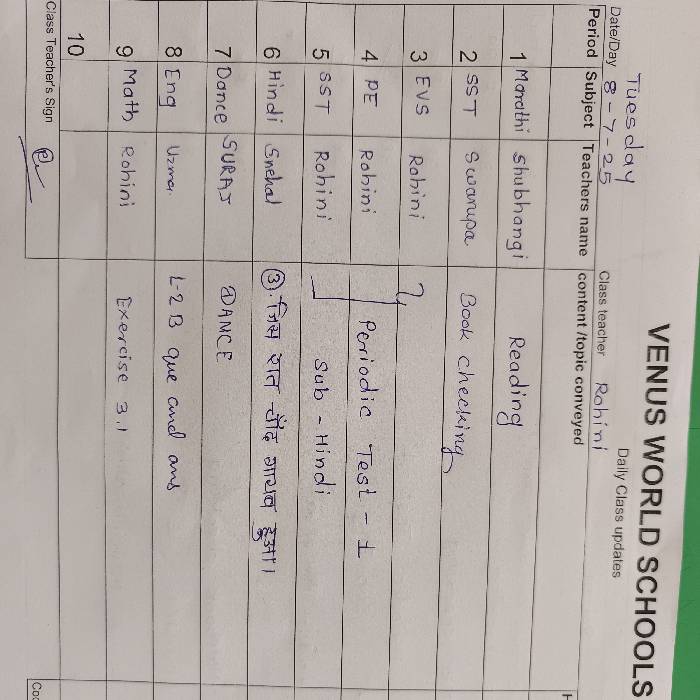 VENUS WORLD SCHOOLS
Daily Class updates
Tuesday
Date/Day 8-7-25 Class teacher Rohini
Period Subject Teachers name content /topic conveyed
1 Marathi Shubhangi Reading
2 SST Swarupa Book checking
3 EVS Rohini
4 PE Rohini Periodic Test - 1
5 SST Rohini Sub - Hindi
6 Hindi Snehal ③. जिस रात चाँद गायब हुआ।
7 Dance SURAJ DANCE
8 Eng Uzma. L-2 B que and ans
9 Math Rohini Exercise 3.1
10
Class Teacher's Sign